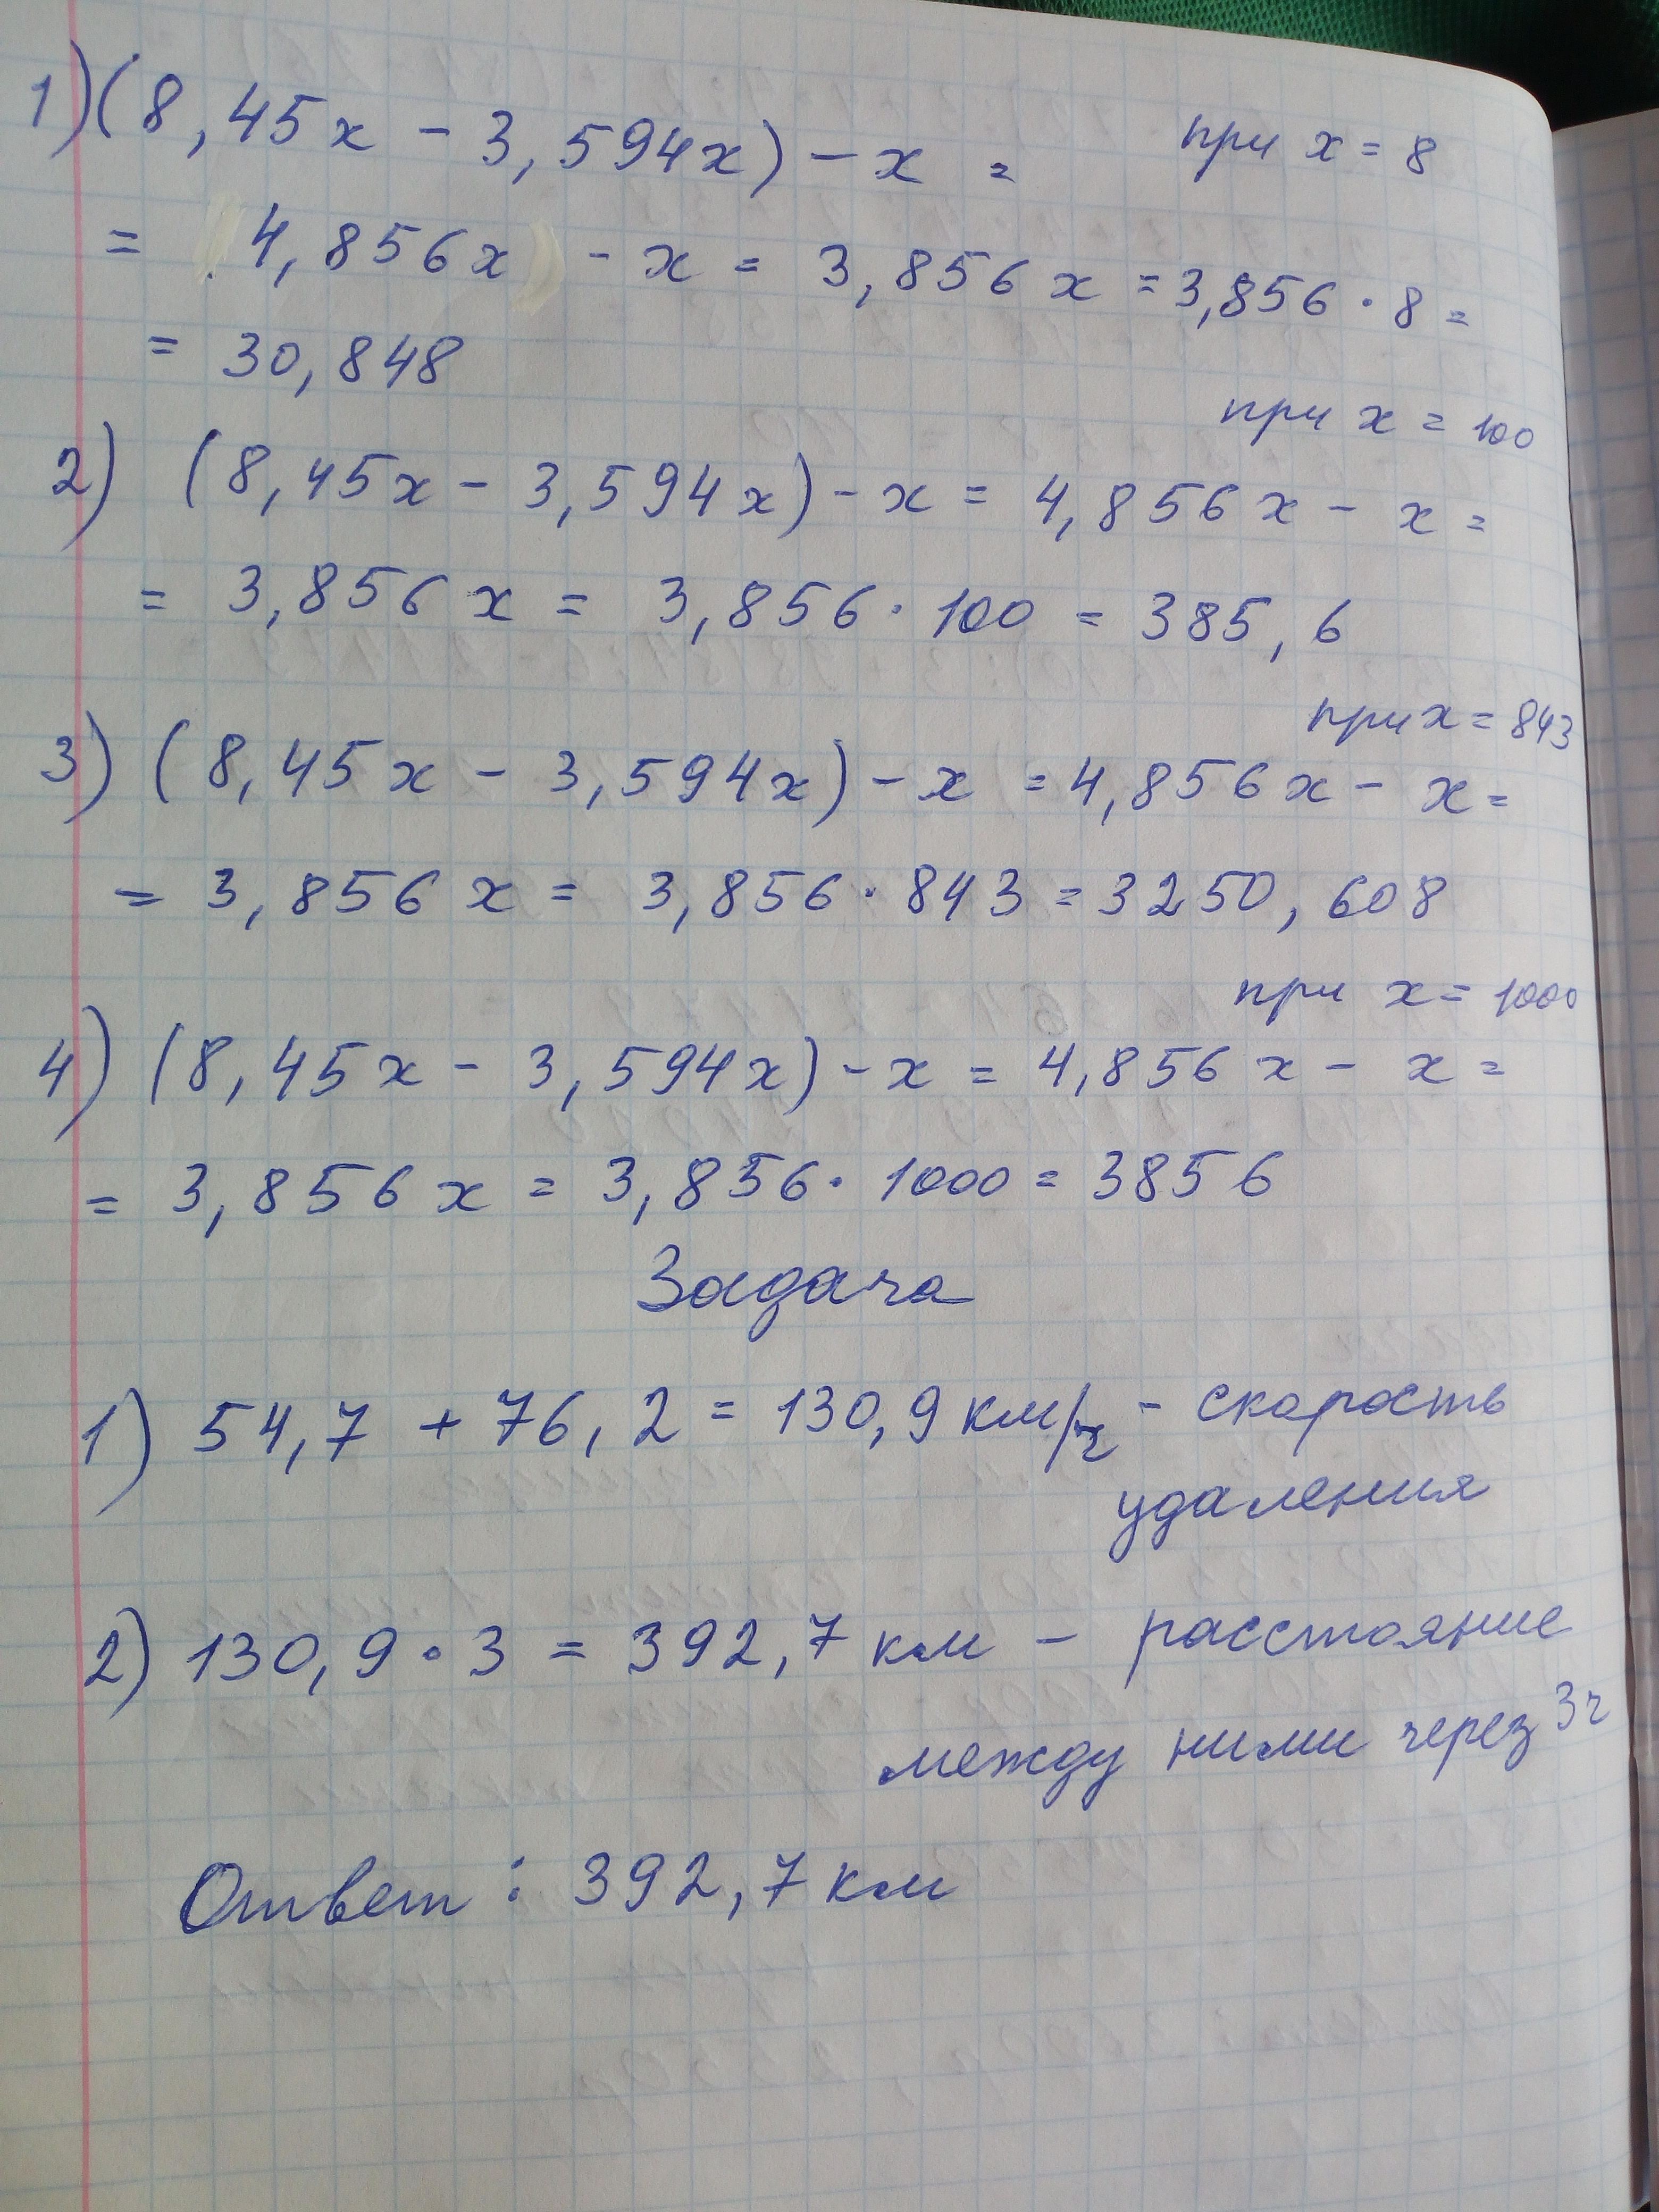 1) (8,45x - 3,594x) - x = при x = 8
= 4,856x - x = 3,856x = 3,856 · 8 =
= 30,848
при x = 100
2) (8,45x - 3,594x) - x = 4,856x - x =
= 3,856x = 3,856 · 100 = 385,6
при x = 843
3) (8,45x - 3,594x) - x = 4,856x - x =
= 3,856x = 3,856 · 843 = 3250,608
при x = 1000
4) (8,45x - 3,594x) - x = 4,856x - x =
= 3,856x = 3,856 · 1000 = 3856
Задача
1) 54,7 + 76,2 = 130,9 км/ч - скорость
удаления
2) 130,9 · 3 = 392,7 км - расстояние
между ними через 3ч
Ответ: 392,7 км